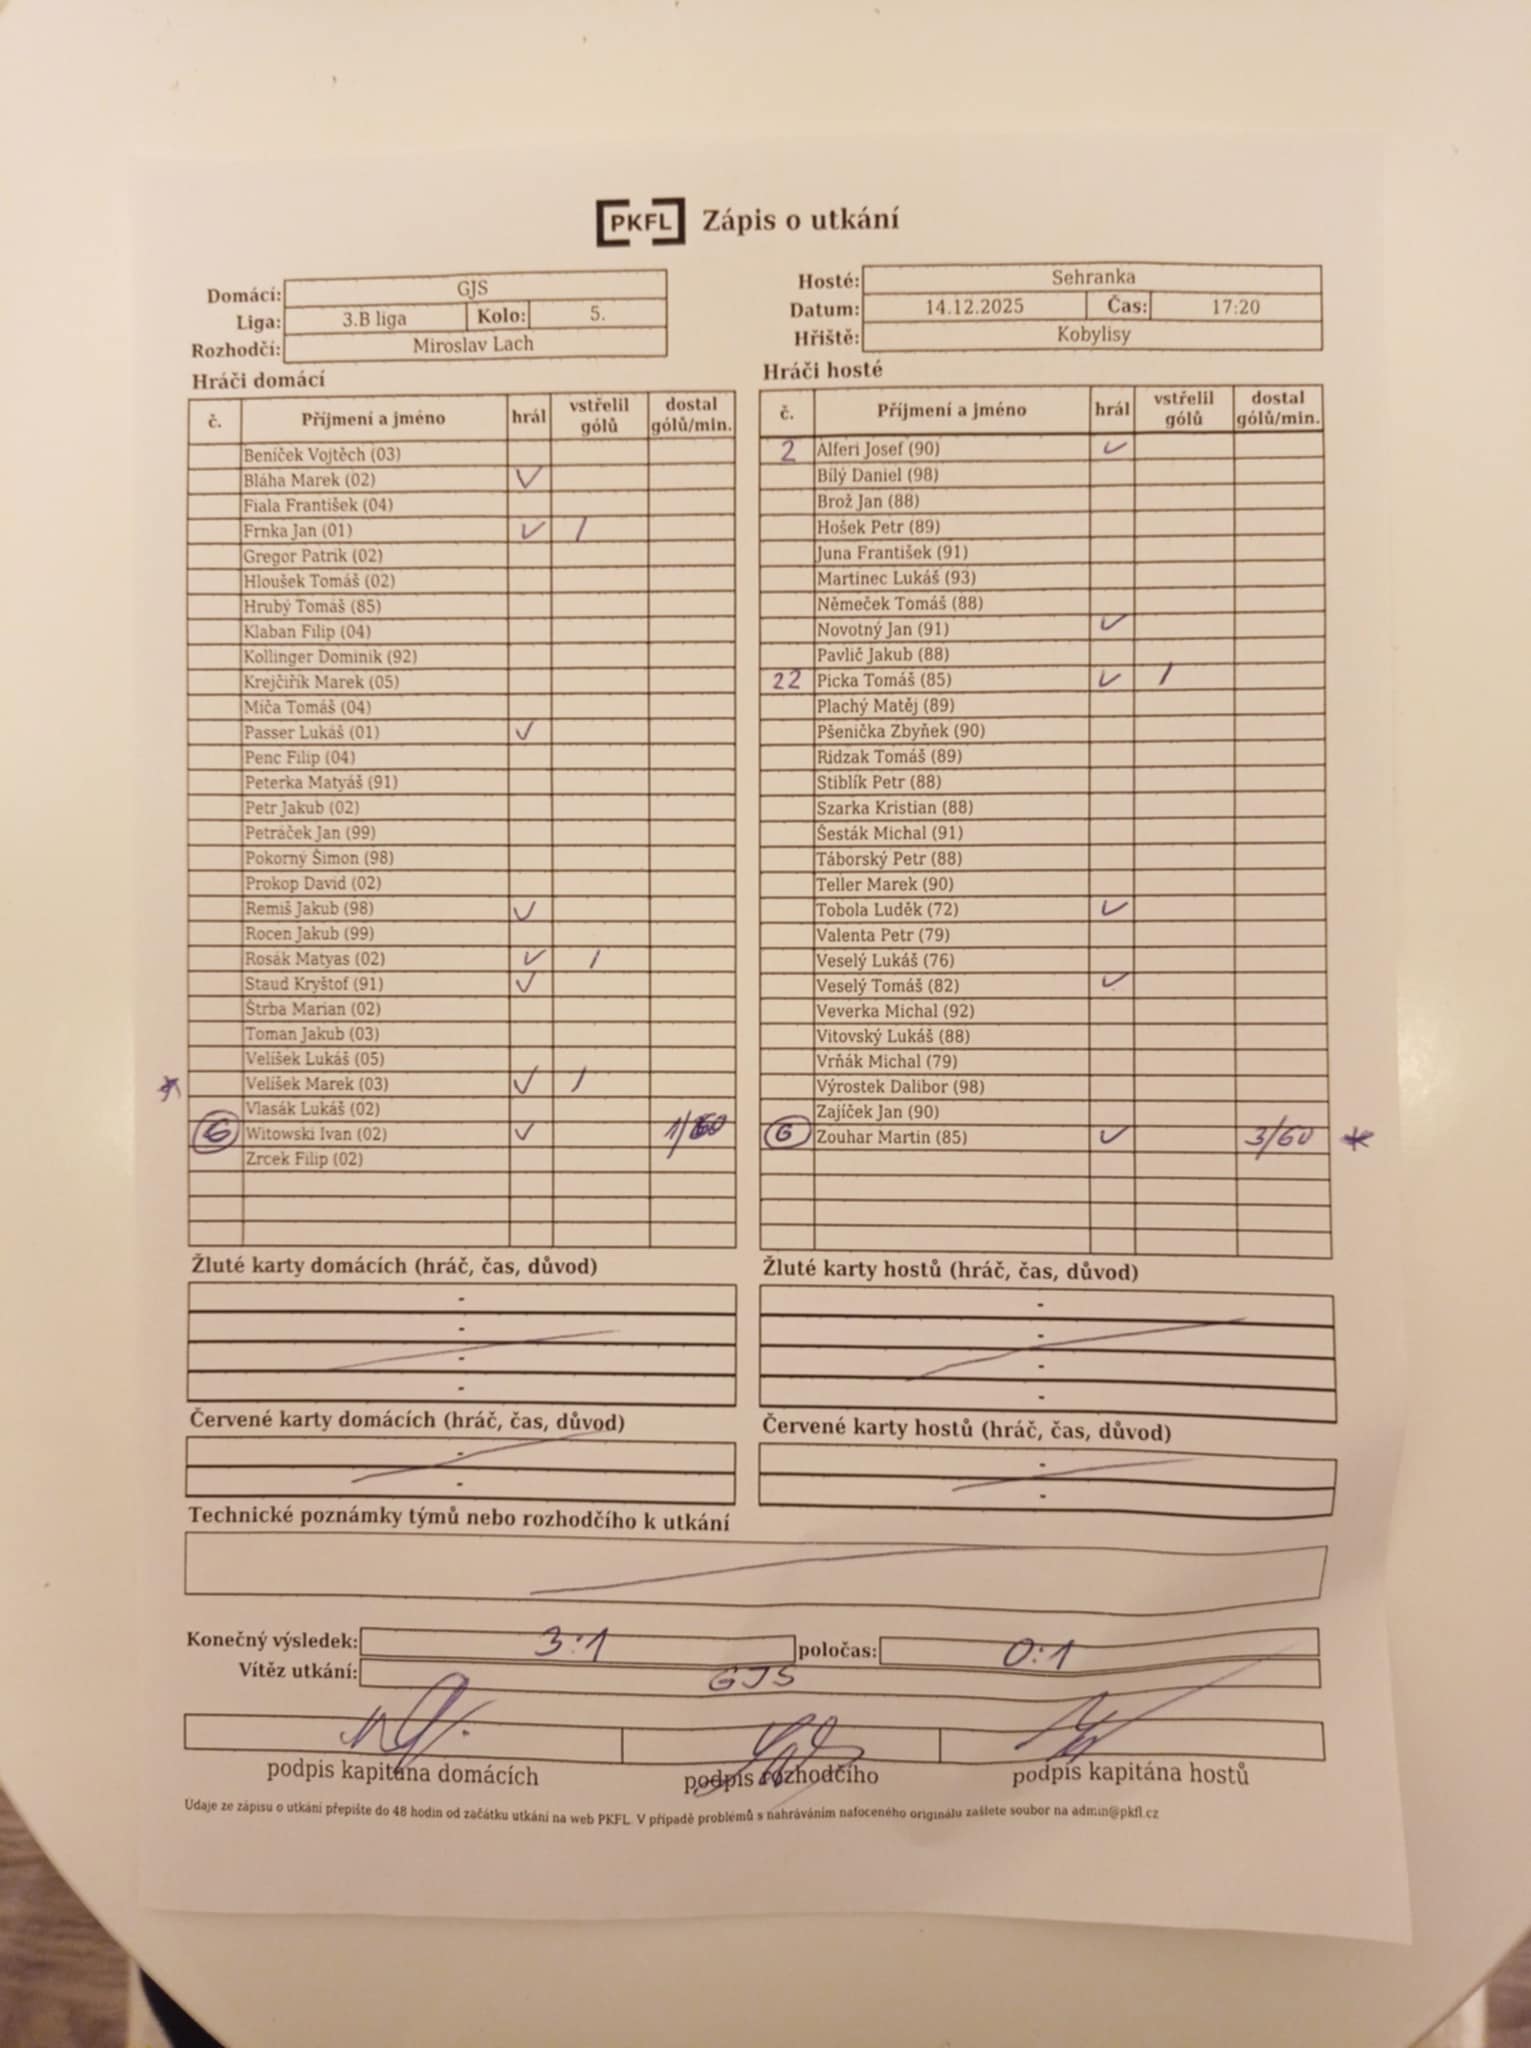 PKFL Zápis o utkání
Domácí: GJS
Liga: 3.B liga Kolo: 5.
Rozhodčí: Miroslav Lach
Hosté: Sehranka
Datum: 14.12.2025 Čas: 17:20
Hřiště: Kobylisy
Hráči domácí
č. Příjmení a jméno hrál vstřelil gólů dostal gólů/min.
Beníček Vojtěch (03)
Bláha Marek (02) ✓
Fiala František (04)
Frnka Jan (01) ✓ /
Gregor Patrik (02)
Hloušek Tomáš (02)
Hrubý Tomáš (85)
Klaban Filip (04)
Kollinger Dominik (92)
Krejčiřík Marek (05)
Míča Tomáš (04)
Passer Lukáš (01) ✓
Penc Filip (04)
Peterka Matyáš (91)
Petr Jakub (02)
Petráček Jan (99)
Pokorný Šimon (98)
Prokop David (02)
Remiš Jakub (98) ✓
Rocen Jakub (99)
Rosák Matyas (02) ✓ /
Staud Kryštof (91) ✓
Štrba Marian (02)
Toman Jakub (03)
Velíšek Lukáš (05)
* Velíšek Marek (03) ✓ /
Vlasák Lukáš (02)
G Witowski Ivan (02) ✓ 1/60
Zrcek Filip (02)
Hráči hosté
č. Příjmení a jméno hrál vstřelil gólů dostal gólů/min.
2 Alferi Josef (90) ✓
Bílý Daniel (98)
Brož Jan (88)
Hošek Petr (89)
Juna František (91)
Martinec Lukáš (93)
Němeček Tomáš (88)
Novotný Jan (91) ✓
Pavlič Jakub (88)
22 Picka Tomáš (85) ✓ /
Plachý Matěj (89)
Pšenička Zbyňek (90)
Ridzak Tomáš (89)
Stiblík Petr (88)
Szarka Kristian (88)
Šesták Michal (91)
Táborský Petr (88)
Teller Marek (90)
Tobola Luděk (72) ✓
Valenta Petr (79)
Veselý Lukáš (76)
Veselý Tomáš (82) ✓
Veverka Michal (92)
Vitovský Lukáš (88)
Vrňák Michal (79)
Výrostek Dalibor (98)
Zajíček Jan (90)
G Zouhar Martin (85) ✓ 3/60 *
Žluté karty domácích (hráč, čas, důvod)
-
-
-
-
Žluté karty hostů (hráč, čas, důvod)
-
-
-
-
Červené karty domácích (hráč, čas, důvod)
-
-
Červené karty hostů (hráč, čas, důvod)
-
-
Technické poznámky týmů nebo rozhodčího k utkání
Konečný výsledek: 3:1 poločas: 0:1
Vítěz utkání: GJS
podpis kapitána domácích podpis rozhodčího podpis kapitána hostů
Údaje ze zápisu o utkání přepište do 48 hodin od začátku utkání na web PKFL. V případě problémů s nahráváním nafoceného originálu zašlete soubor na admin@pkfl.cz